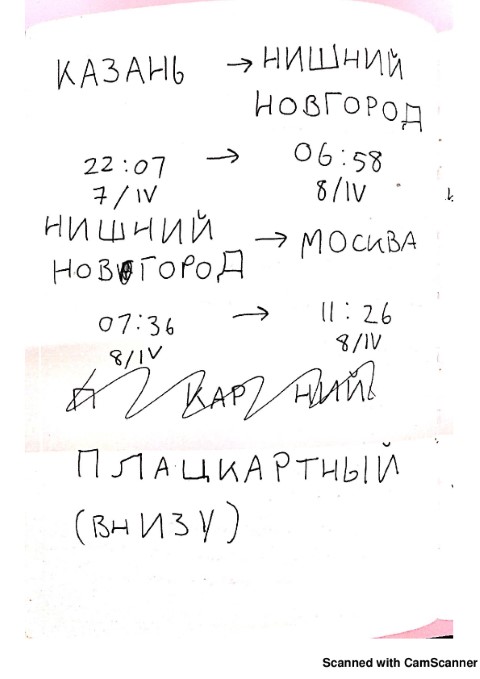 КАЗАНЬ → НИШНИЙ
НОВГОРОД
22:07 → 06:58
7/IV 8/IV
НИШНИЙ
НОВГОРОД → МОСКВА
07:36 → 11:26
8/IV 8/IV
ПЛАЦКАРТНЫЙ
(ВНИЗУ)
Scanned with CamScanner